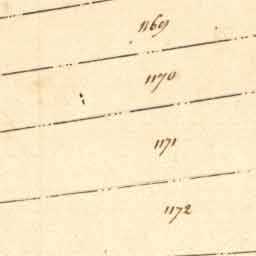 1169
1170
1171
1172